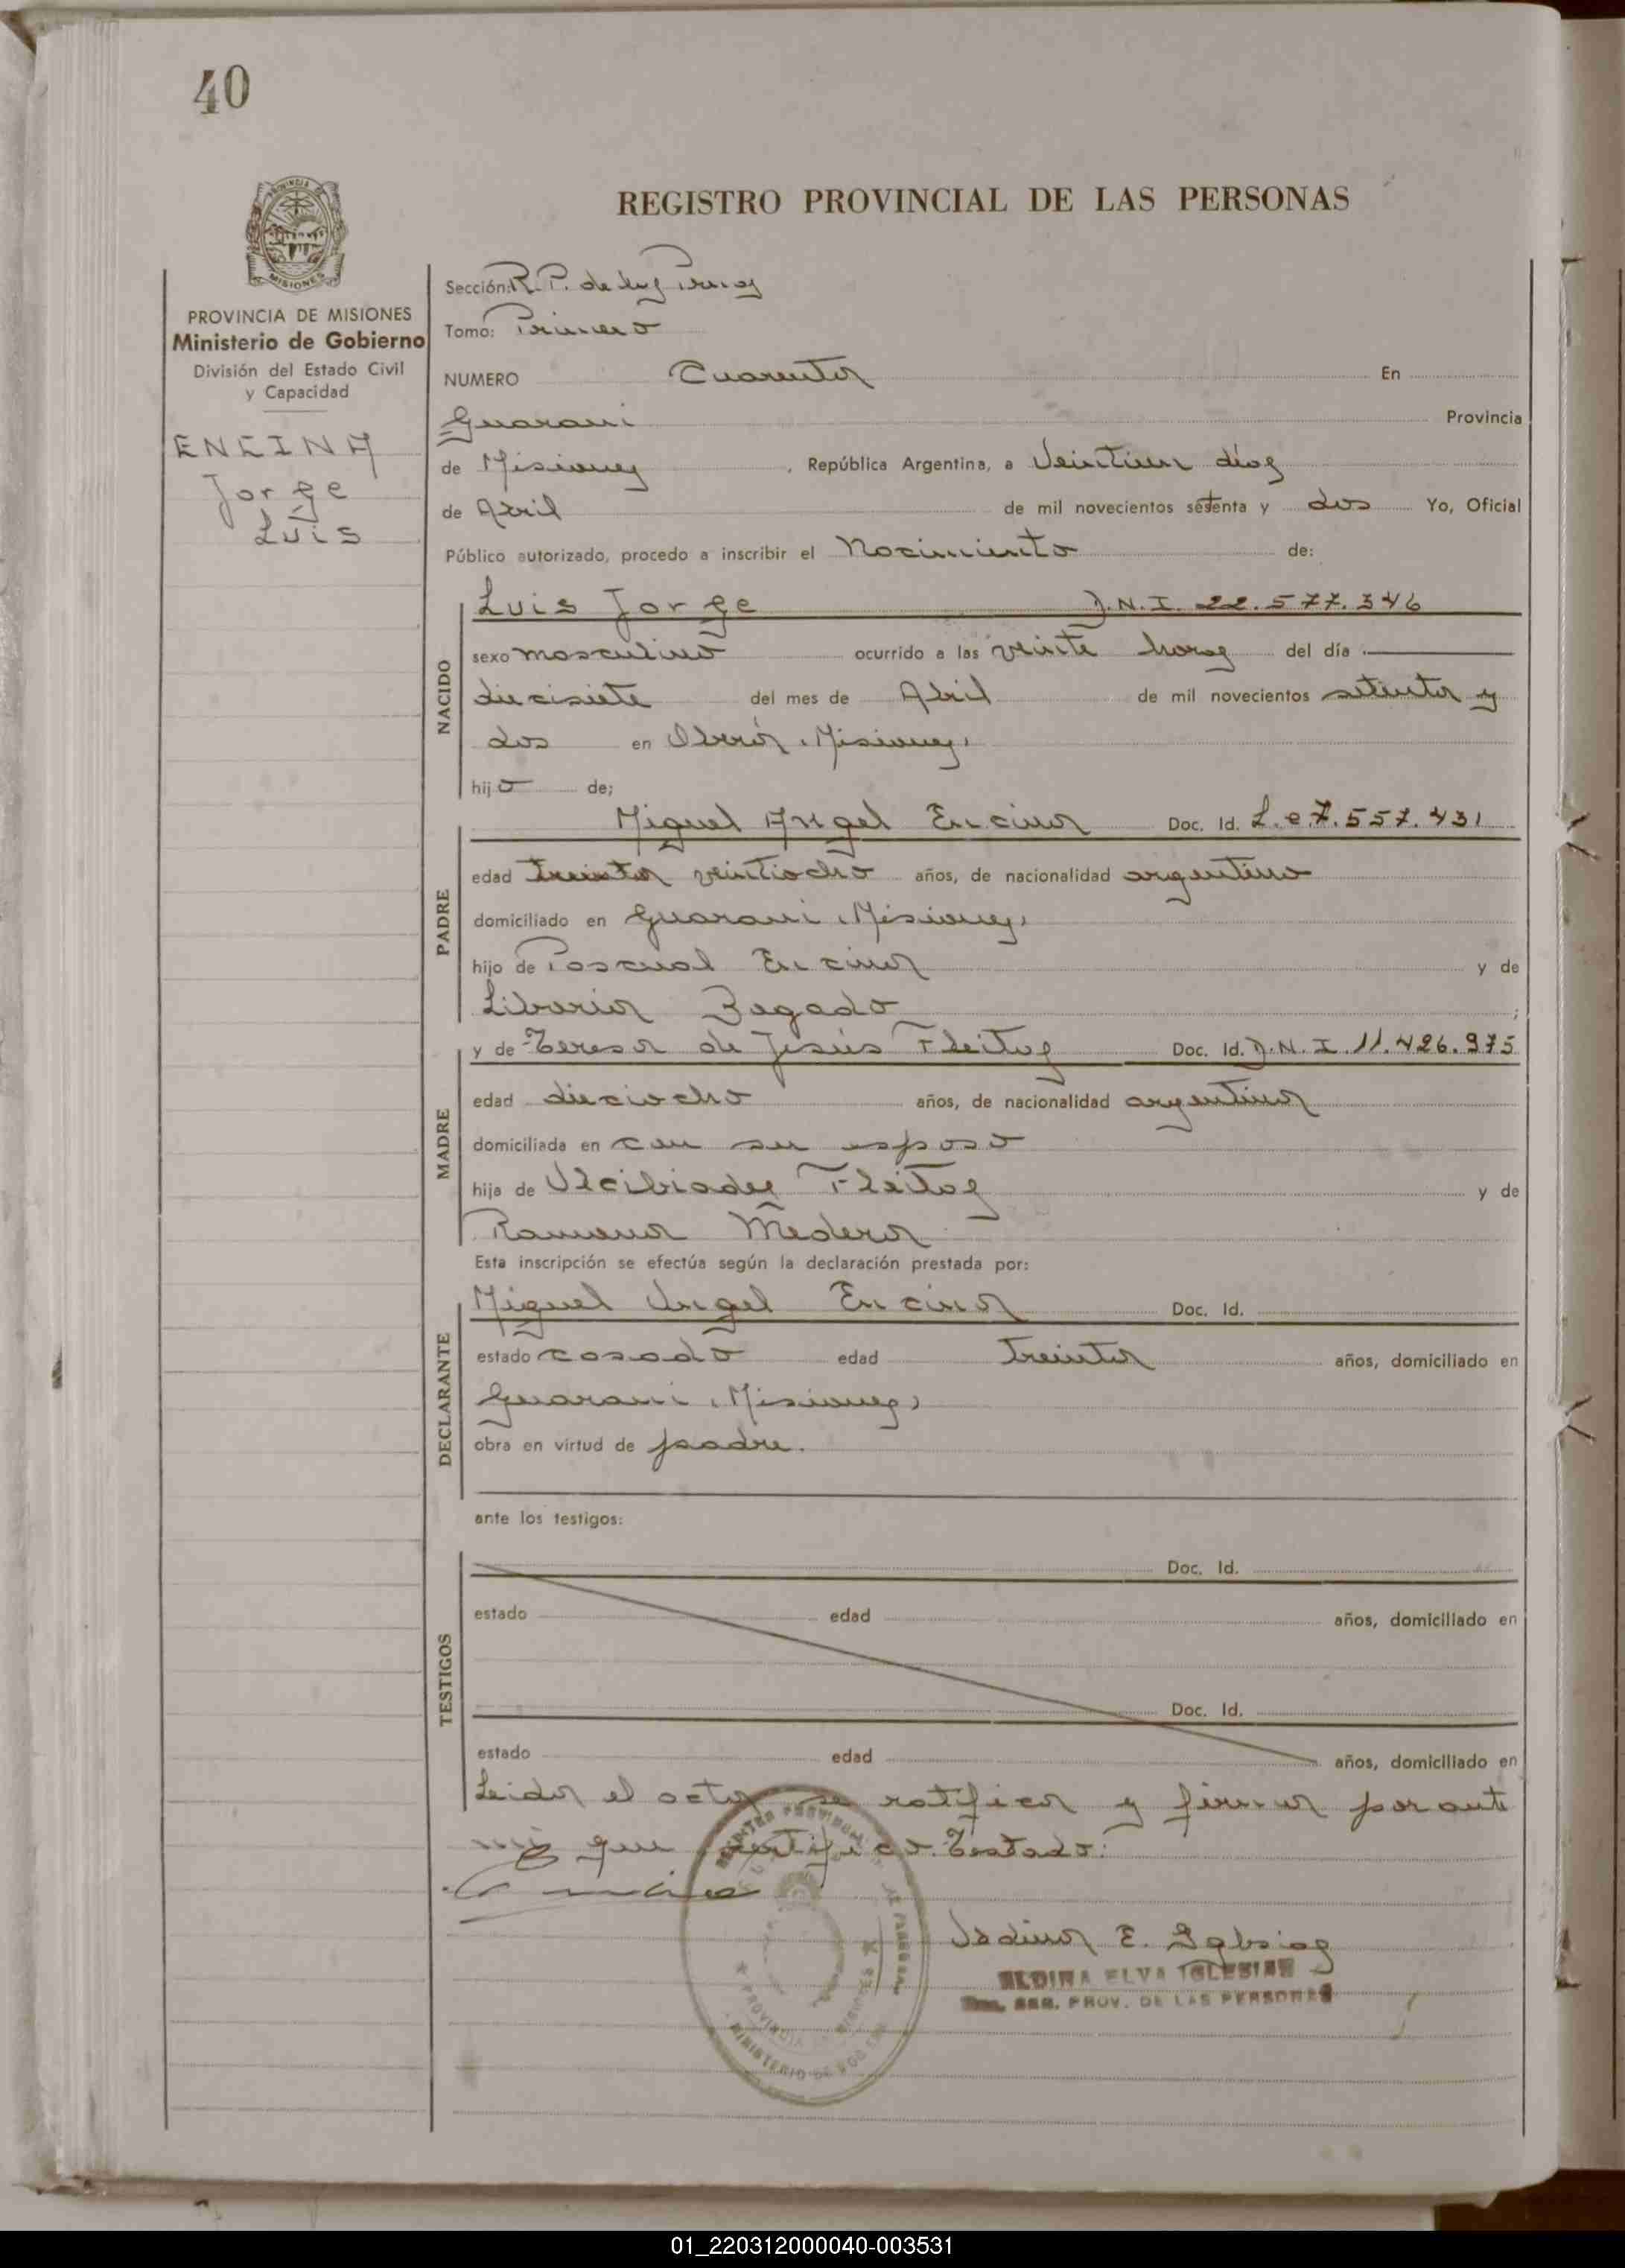 40
REGISTRO PROVINCIAL DE LAS PERSONAS
PROVINCIA DE
MISIONES
PROVINCIA DE MISIONES
Ministerio de Gobierno
División del Estado Civil
y Capacidad
ENCINA
Jorge
Luis
Sección: R. P. de las
Tomo: Primero
NUMERO Cuarenta En
Guarani Provincia
de Misiones, República Argentina, a Veintiun dias
de Abril de mil novecientos sesenta y dos Yo, Oficial
Público autorizado, procedo a inscribir el Nacimiento de:
NACIDO
Luis Jorge D.N.I. 22.577.346
sexo masculino ocurrido a las veinte horas del día
diecisiete del mes de Abril de mil novecientos setenta y
dos en Oberá, Misiones,
hijo de;
PADRE
Miguel Angel Encina Doc. Id. L.e 7.557.431
edad treinta veintiocho años, de nacionalidad argentino
domiciliado en Guarani, Misiones,
hijo de Pascual Encina y de
Liboria Bogado ;
MADRE
y de Teresa de Jesús Fleitas Doc. Id. D.N.I 11.426.975
edad dieciocho años, de nacionalidad argentina
domiciliada en con su esposo
hija de Alcibiades Fleitas y de
Ramona Medera
Esta inscripción se efectúa según la declaración prestada por:
DECLARANTE
Miguel Angel Encina Doc. Id.
estado casado edad treinta años, domiciliado en
Guarani, Misiones,
obra en virtud de padre.
ante los testigos:
TESTIGOS
Doc. Id.
estado edad años, domiciliado en
Doc. Id.
estado edad años, domiciliado en
Leida el acta se ratifica y firma por ante
mi que certifico. Testado:
REGISTRO PROVINCIAL DE LAS PERSONAS
PROVINCIA MISIONES
MINISTERIO DE GOBIERNO
E. Iglesias
ELVA IGLESIAS
PROV. DE LAS PERSONAS
01_220312000040-003531